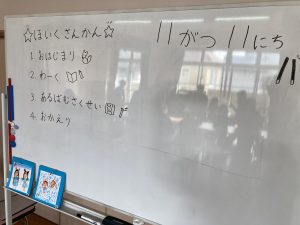 ☆ほいくさんかん☆
1. おはじまり
2. わーく
3. あるばむさくせい
4. おかえり
11がつ11にち